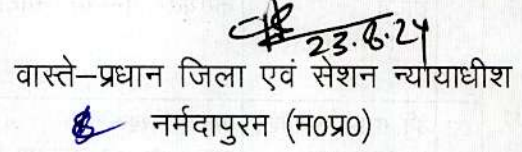 23.8.24
वास्ते–प्रधान जिला एवं सेशन न्यायाधीश
नर्मदापुरम (म0प्र0)